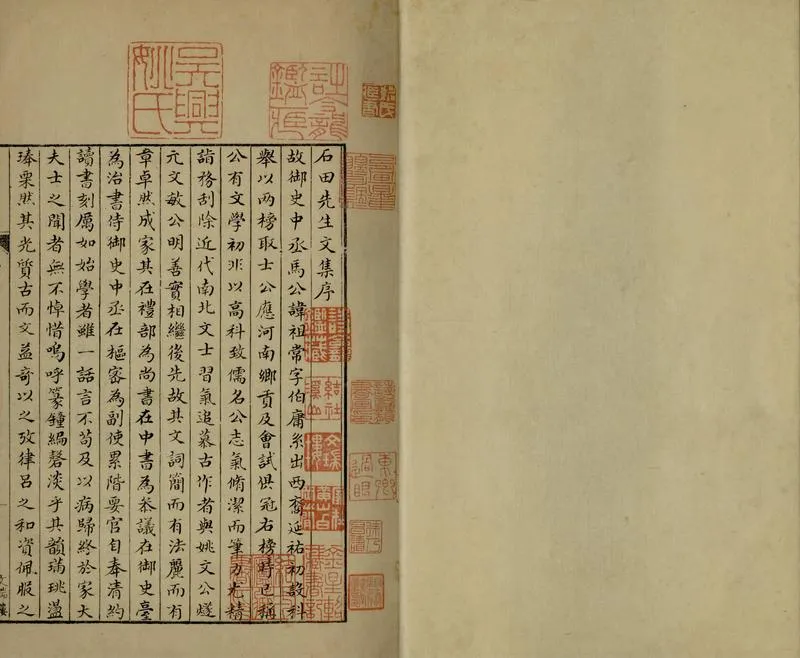 石田先生文集序
故御史中丞馬公諱祖常字伯庸系出西裔延祐初設科
舉以两榜取士公應河南鄉貢及會試俱冠右榜時已稱
公有文學初非以高科致儒名公志氣脩潔而筆力尤精
詣務刮除近代南北文士習氣追慕古作者與姚文公燧
元文敏公明善實相繼後先故其文詞簡而有法麗而有
章卓然成家其在禮部為尚書在中書為叅議在御史臺
為治書侍御史中丞在樞密為副使累階要官自奉清約
讀書刻厲如始學者雖一話言不苟及以病歸終於家大
夫士之聞者無不悼惜嗚呼篆鐘編磬淡乎其韻珧盪
琫栗然其光質古而文益奇以之攷律呂之和資佩服之
文瑞樓
吳興姚氏
結社溪山
文瑞樓